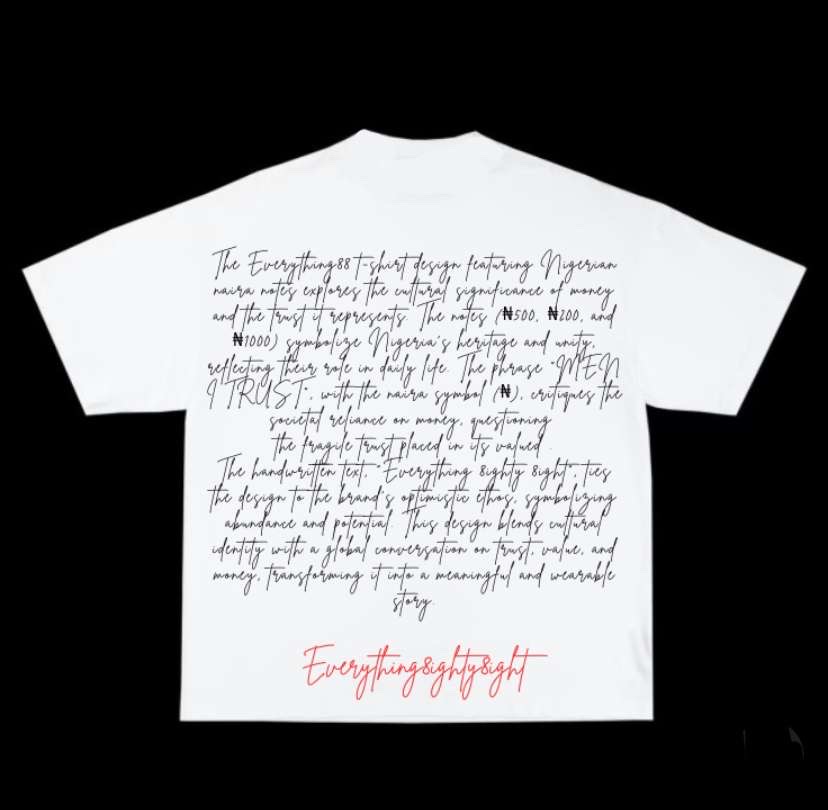 The Everything88 T-shirt design featuring Nigerian
naira notes explores the cultural significance of money
and the trust it represents. The notes (₦500, ₦200, and
₦1000) symbolize Nigeria's heritage and unity,
reflecting their role in daily life. The phrase "MEN
I TRUST", with the naira symbol (₦), critiques the
societal reliance on money, questioning
the fragile trust placed in its valued .
The handwritten text, "Everything 8ighty 8ight", ties
the design to the brand's optimistic ethos, symbolizing
abundance and potential. This design blends cultural
identity with a global conversation on trust, value, and
money, transforming it into a meaningful and wearable
story.
Everything8ighty8ight